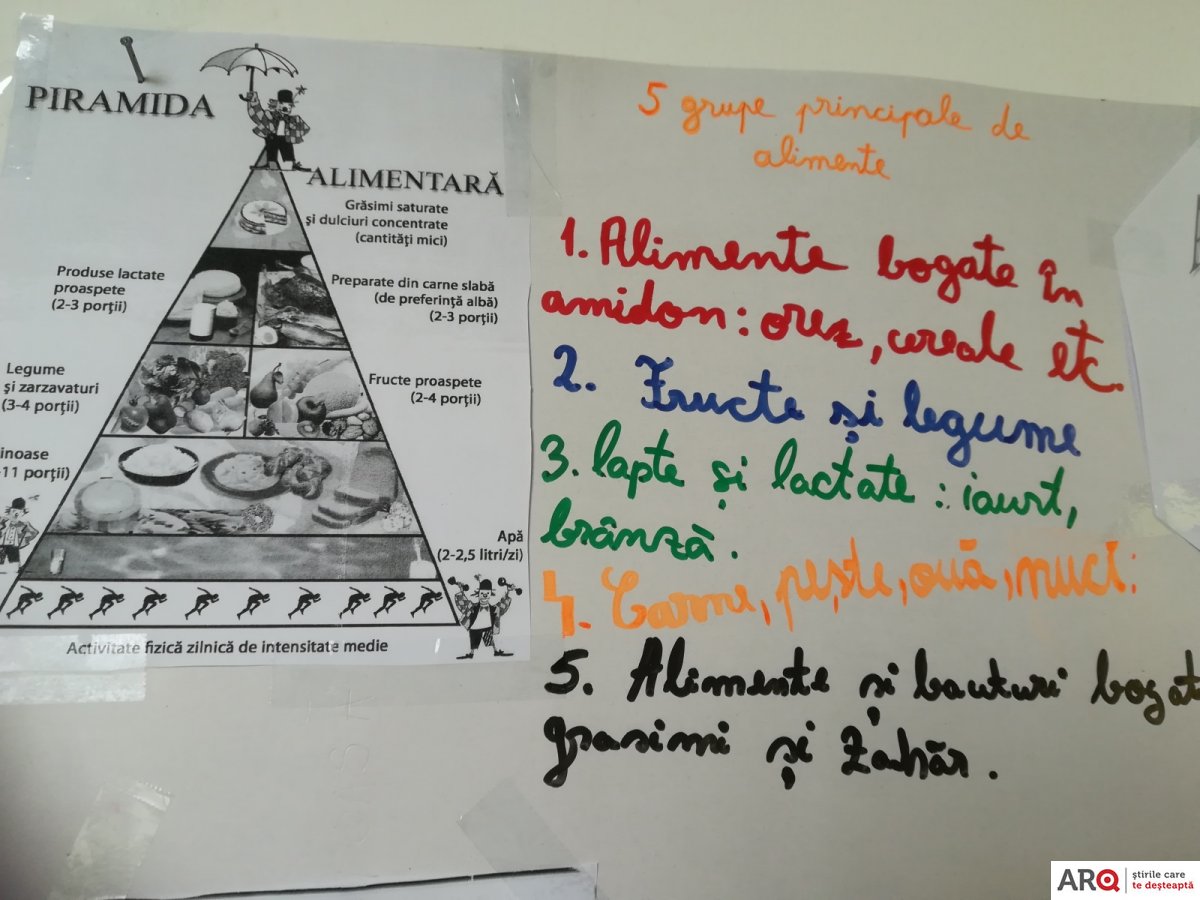 PIRAMIDA
ALIMENTARĂ
Grăsimi saturate
și dulciuri concentrate
(cantităţi mici)
Produse lactate
proaspete
(2-3 porţii)
Preparate din carne slabă
(de preferinţă albă)
(2-3 porţii)
Legume
și zarzavaturi
(3-4 porţii)
Fructe proaspete
(2-4 porţii)
inoase
11 porţii)
Apă
(2-2,5 litri/zi)
Activitate fizică zilnică de intensitate medie
5 grupe principale de
alimente
1. Alimente bogate în
amidon: orez, cereale etc.
2. Fructe și legume
3. lapte și lactate : iaurt,
brânză.
4. Carne, pește, ouă, nuci.
5. Alimente și bauturi bogat
grasimi și zahăr.
ARQ
știrile care
te deșteaptă